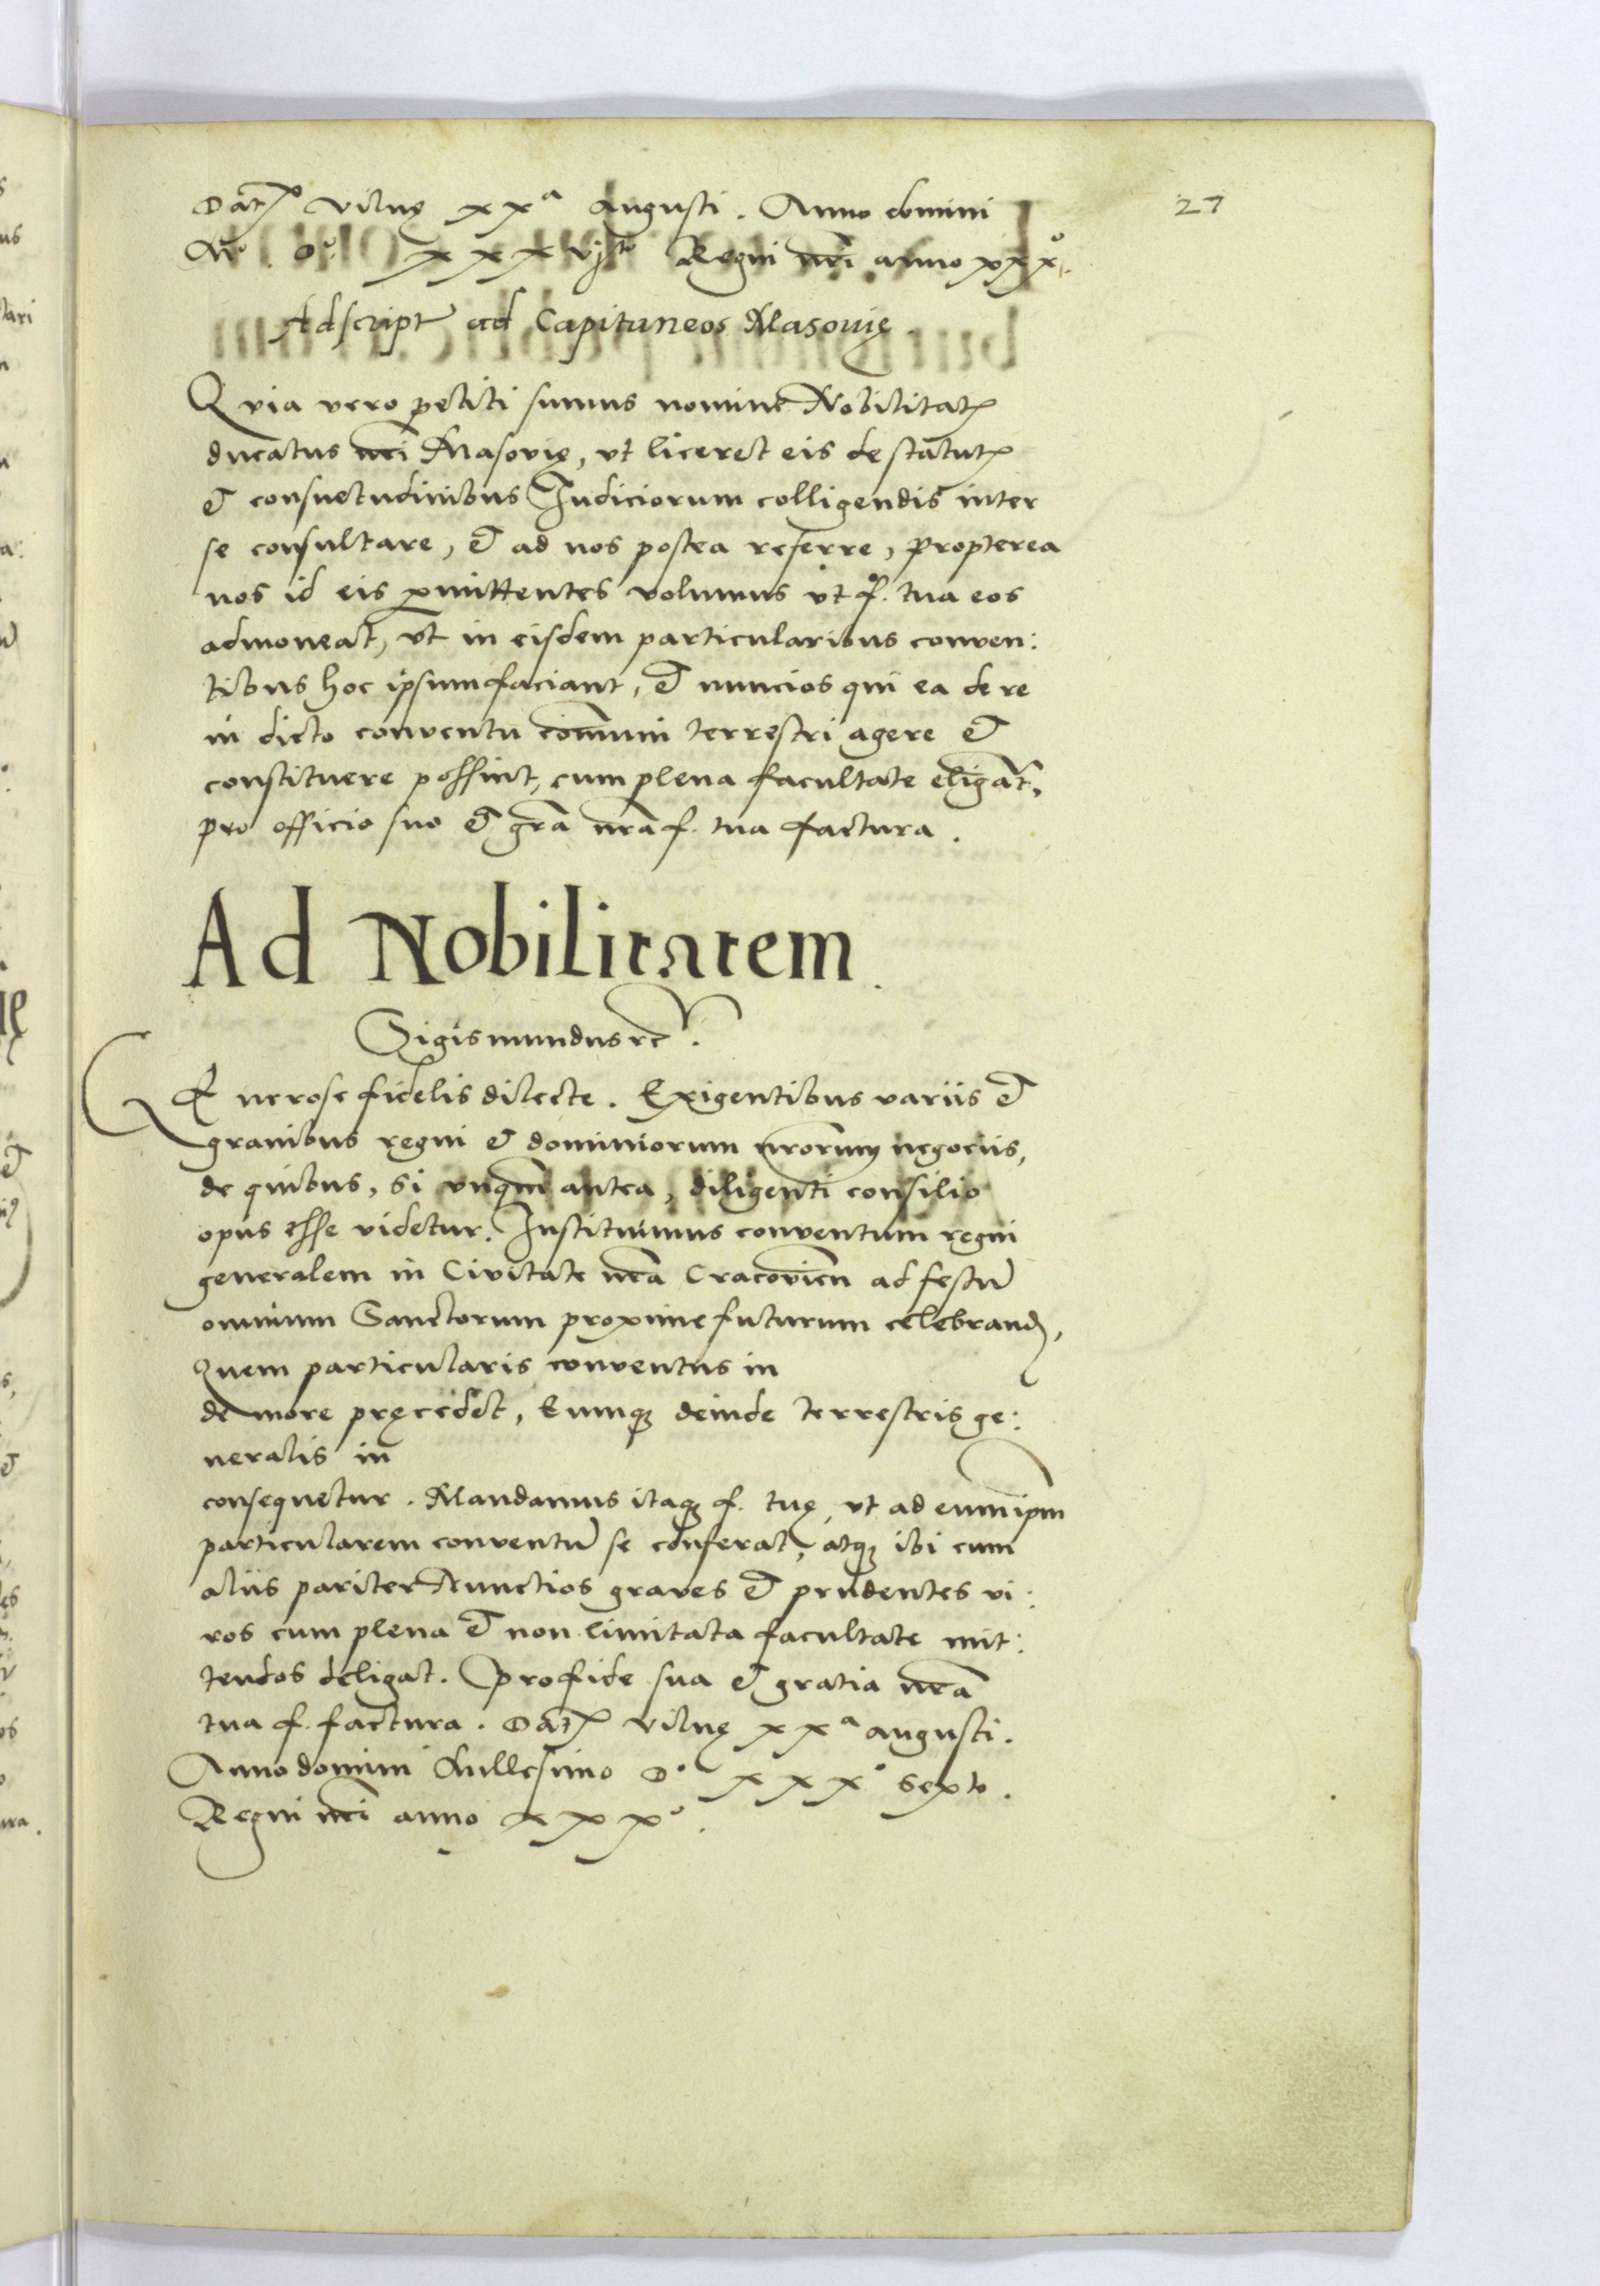 27
Datꝭ Vilnę xxᵃ Augusti. Anno domini
Mᵒ. Dᵒ. xxxvjᵗᵒ Regni nri anno xxxᵒ.
Adscript ad Capitaneos Masovię
Quia vero petiti sumus nomine Nobilitatꝭ
ducatus nri Masovię, vt liceret eis de statutꝭ
et consuetudinibus Iudiciorum colligendis inter
se consultare, et ad nos postea referre, propterea
nos id eis ꝑmittentes volumus vt f. tua eos
admoneat, vt in eisdem particularibus conven:
tibus hoc ipsum faciant, et nuncios qui ea de re
in dicto conventu comuni terrestri agere et
constituere possint, cum plena facultate eligāt,
pro officio suo et gra nra f. tua factura.
Ad Nobilitatem.
Sigismundus rc.
Generose fidelis dilecte. Exigentibus variis et
gravibus regni et dominiorum nrorum negociis,
de quibus, si vnqm antea, diligenti consilio
opus esse videtur. Instituimus conventum regni
generalem in Civitate nra Cracovien ad festū
omnium Sanctorum proxime futurum celebrand,
Quem particularis conventus in
de more pręcedet, Eumqꝫ deinde terrestris ge:
neralis in
consequetur. Mandamus itaqꝫ f. tuę, vt ad eum ipm
particularem conventū se conferat, atqꝫ ibi cum
aliis pariter Nunctios graves et prudentes vi:
ros cum plena et non limitata facultate mit:
tendos deligat. Pro fide sua et gratia nra
tua f. factura. Datꝭ Vilnę xxᵃ augusti.
Anno domini Millesimo Dᵒ xxxᵒ Sexto.
Regni nri anno xxxᵒ.